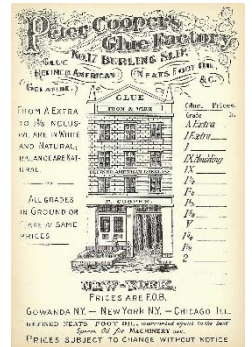 Peter Cooper's
Glue Factory,
No. 17 Burling Slip.
Glue
Refined American
Gelatine.
Neats Foot Oil
&c.
From A Extra
to 1¾ inclus-
ive are in White
and Natural,
Balance are Nat-
ural.
All grades
in Ground or
Flake at same
prices
GLUE
REFINED AMERICAN GELATINE
P. COOPER.
Glue. Prices.
Grade
A Extra
1 Extra
1
1X
1¼
1½
2
New-York.
Prices are F.O.B.
Gowanda N.Y. — New York N.Y. — Chicago Ill.
Refined Neats Foot Oil, warranted equal to the best
Sperm Oil for Machinery use.
Prices subject to change without notice